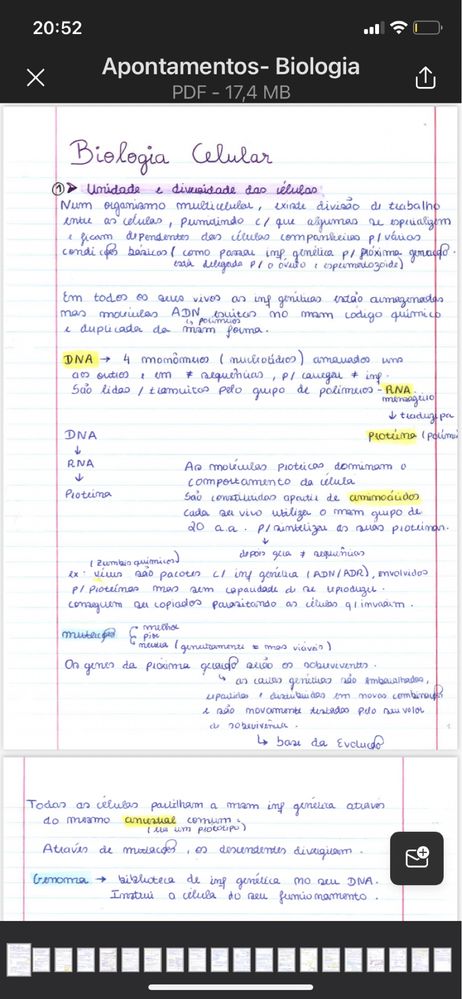 20:52
Apontamentos- Biologia
PDF - 17,4 MB
Biologia Celular
① ➤ Unidade e diversidade das células
Num organismo multicelular, existe divisão de trabalho
entre as células, permitindo c/ que algumas se especializem
e ficam dependentes das células companheiras p/ várias
condições básicas (como passar inf genética p/ próxima geração
está delegada p/ o óvulo e espermatozoide)
Em todos os seres vivos as inf genéticas estão armazenadas
nas moléculas ADN escritas no mesm código químico
in polímeros
e duplicada da mesm forma.
DNA → 4 monómeros (nucleótidios) amarrados uns
aos outros e em ≠ sequências, p/ carregar ≠ inf.
São lidas / transcritas pelo grupo de polímeros - RNA
mensageiro
↓ traduz para
DNA
Proteína (políme
↓
RNA
↓
Proteína
As moléculas proteicas dominam o
comportamento da célula
São constituídas apartir de aminoácidos
cada ser vivo utiliza o mesm grupo de
20 a.a. p/ sintetizar as suas proteínas.
↓
depois gera ≠ sequências
(Zumbis químicos)
ex: vírus são pacotes c/ inf genética (ADN/ADR), envolvidos
p/ proteínas mas sem capacidade de se reproduzir.
conseguem ser copiados parasitando as células q/ invadem.
mutação
melhor
pior
neutra (geneticamente = mas viáveis)
Os genes da próxima geração serão os sobreviventes.
↳ as caras genéticas são embaralhadas,
repartidas e distribuídas em novas combinação
e são novamente testadas pelo seu valor
de sobrevivência.
↳ base da Evolução
Todas as células partilham a mesm inf genética através
do mesmo ancestral comum.
(era um protótipo)
Através de mutações, os descendentes divergiram.
Genoma → biblioteca de inf genética no seu DNA.
Instrui a célula do seu funcionamento.